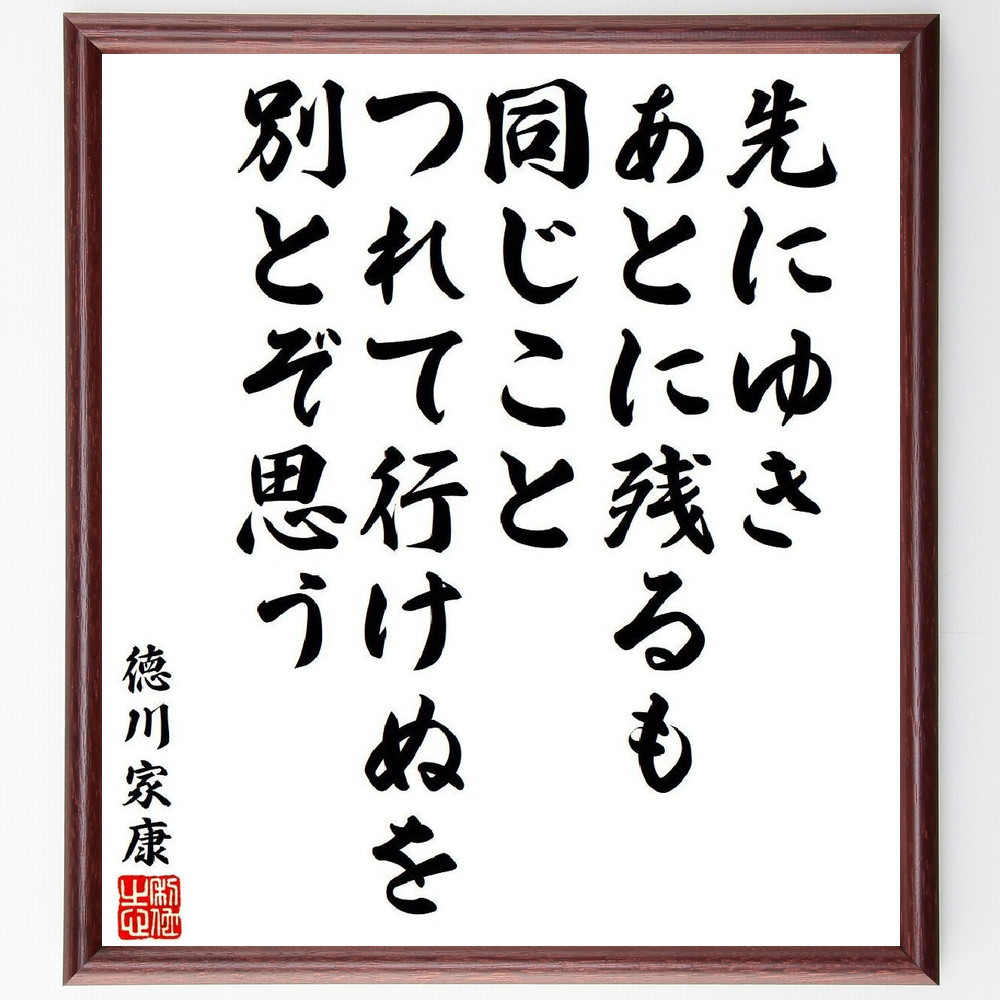 先にゆき
あとに残るも
同じこと
つれて行けぬを
別とぞ思う
徳川家康